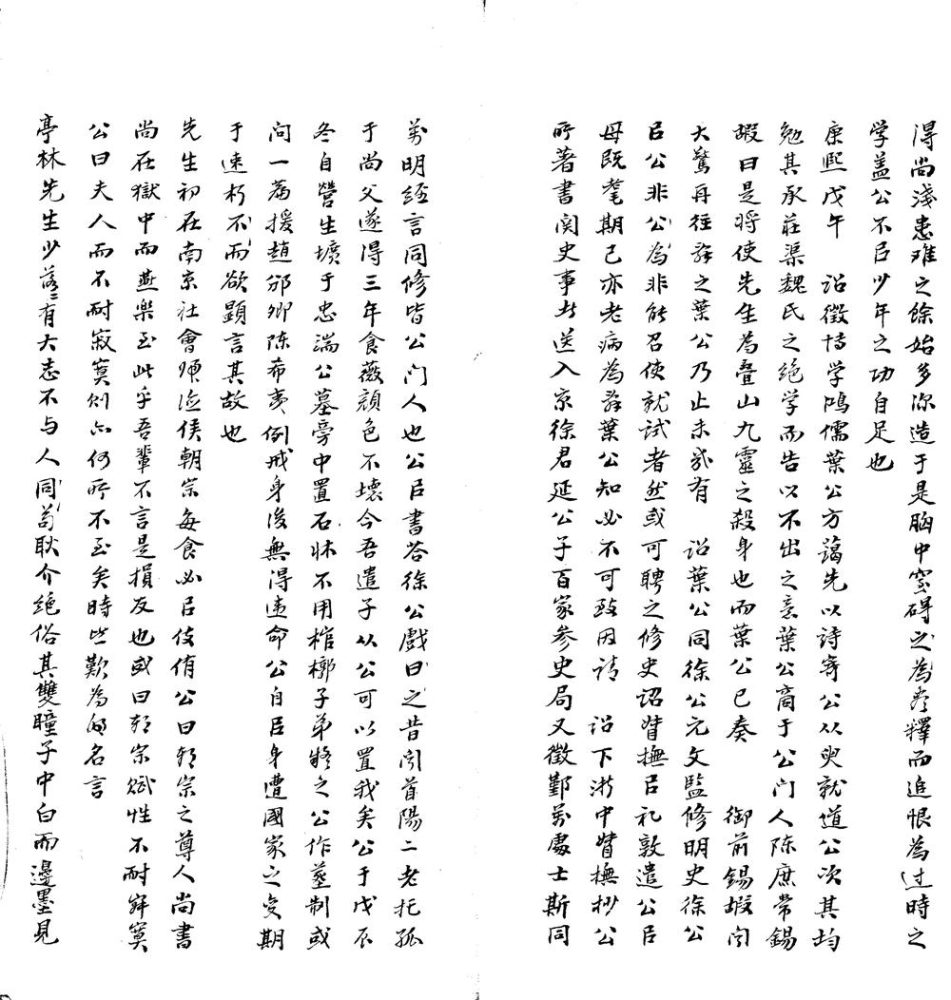 得尚淺患难之餘始多深造于是胸中窒碍之為尽釋而追恨為过時之
学盖公不㠯少年之功自足也
康熙戊午　诏徵博学鸿儒葉公方藹先以詩寄公从臾就道公次其均
勉其承莊渠魏氏之绝学而告以不出之意葉公商于公门人陈庶常錫
嘏曰是将使先生為疊山九靈之殺身也而葉公已奏　御前錫嘏闻
大驚再往辞之葉公乃止未幾有　诏葉公同徐公元文監修明史徐公
㠯公非公為非能召使就试者然或可聘之修史诏督撫㠯礼敦遣公㠯
母既耄期己亦老病為辞葉公知必不可致因请　诏下浙中督撫抄公
所著書関史事者送入京徐君延公子百家参史局又徵鄞萬處士斯同
萬明经言同修皆公门人也公㠯書荅徐公戲曰之昔闻首陽二老托孤
于尚父遂得三年食薇顏色不壞今吾遣子从公可以置我矣公于戊辰
冬自營生壙于忠端公墓旁中置石牀不用棺槨子弟疑之公作葬制或
问一篇援趙邠卿陈希夷例戒身後無得违命公自㠯身遭國家之变期
于速朽不而欲顕言其故也
先生初在南京社會归德侯朝宗每食必㠯伎侑公曰朝宗之尊人尚書
尚在獄中而燕樂至此乎吾輩不言是損友也或曰朝宗赋性不耐寂寞
公曰夫人而不耐寂寞则亦何所不至矣時皆歎為名言
亭林先生少落〻有大志不与人同苟耿介绝俗其雙瞳子中白而邊墨見